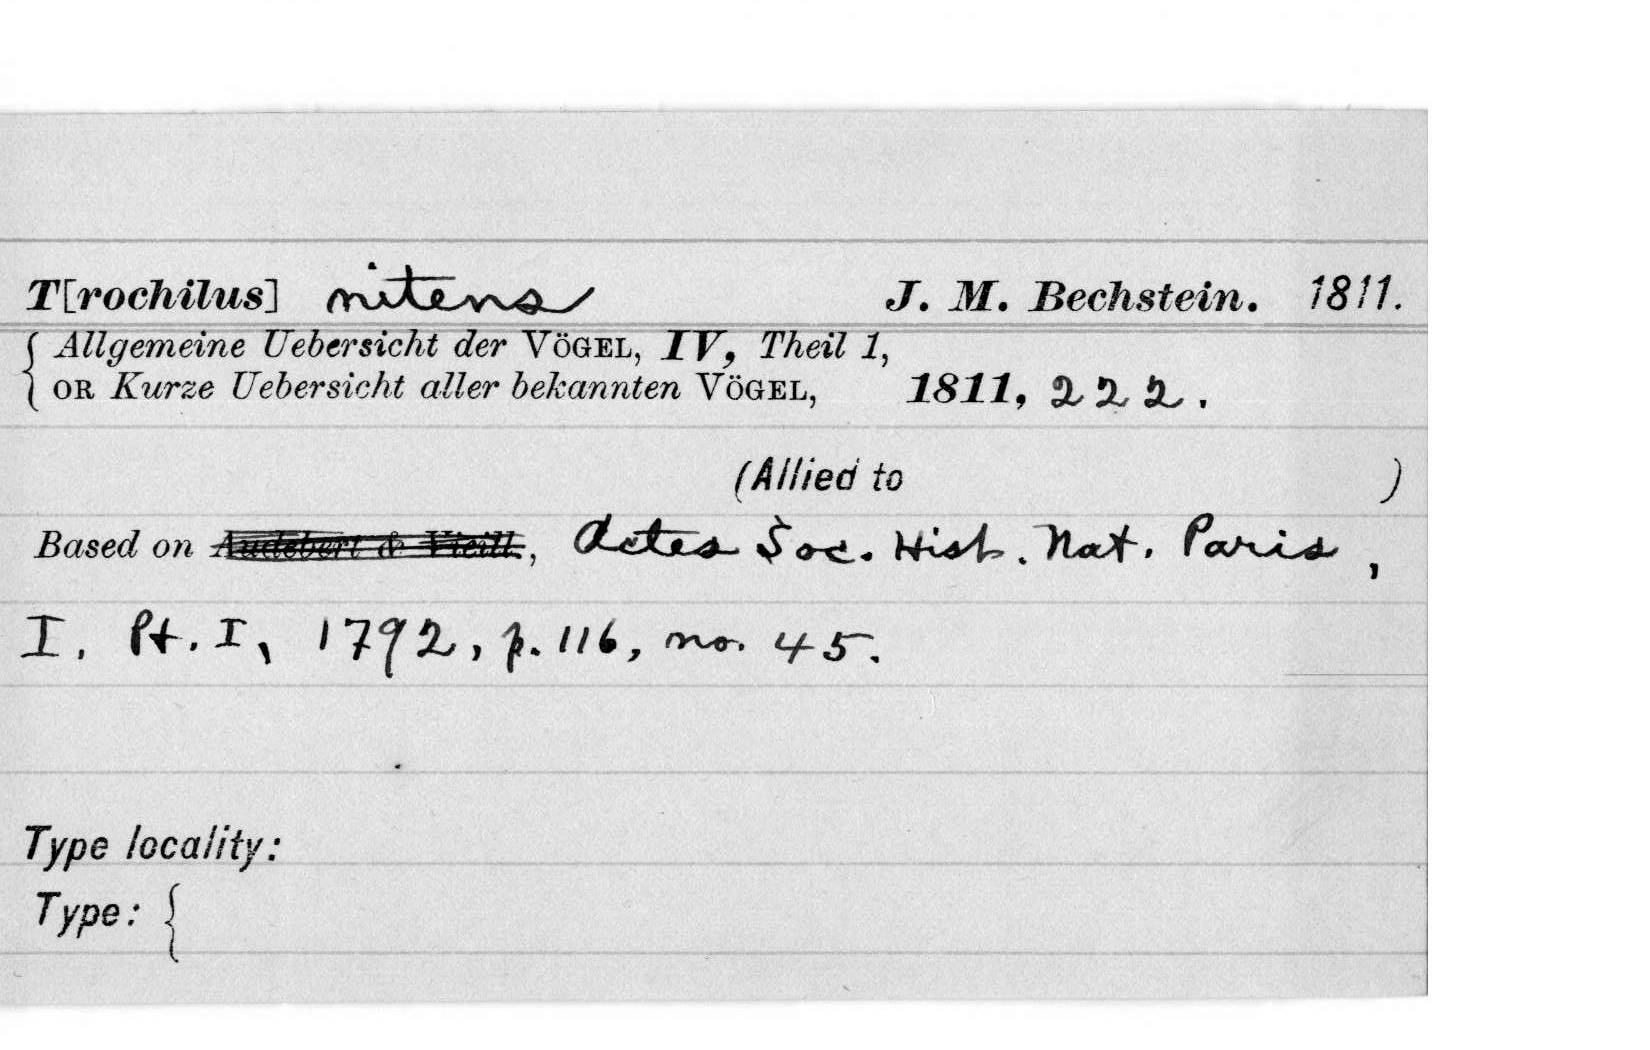 T[rochilus] nitens J. M. Bechstein. 1811.
{ Allgemeine Uebersicht der VÖGEL, IV, Theil 1,
OR Kurze Uebersicht aller bekannten VÖGEL, 1811, 222.
(Allied to )
Based on Audebert & Vieill., Actes Soc. Hist. Nat. Paris,
I. Pt. I, 1792, p. 116, no. 45.
Type locality:
Type: {